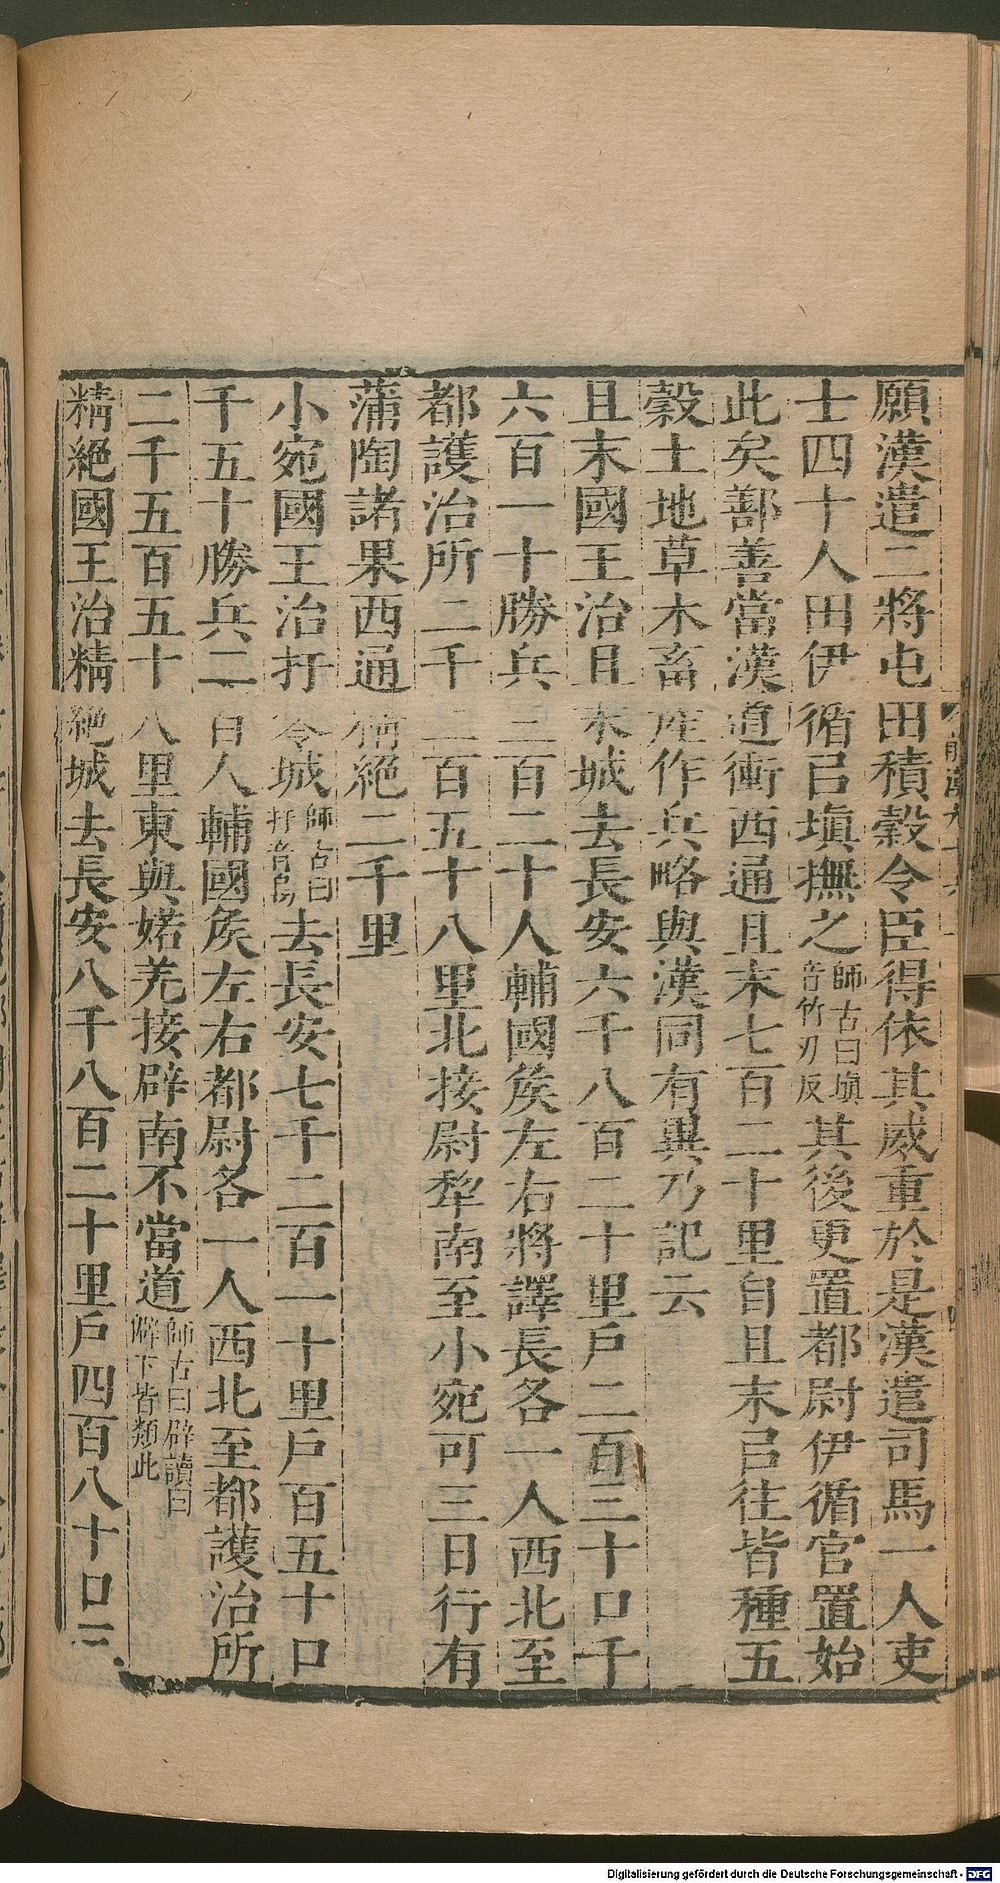 願漢遣二將屯田積穀令臣得依其威重於是漢遣司馬一人吏
士四十人田伊循㠯塡撫之師古曰塡音竹刃反其後更置都尉伊循官置始
此矣鄯善當漢道衝西通且末七百二十里自且末㠯往皆種五
穀土地草木畜産作兵略與漢同有異乃記云
且末國王治且末城去長安六千八百二十里戶二百三十口千
六百一十勝兵三百二十人輔國矦左右將譯長各一人西北至
都護治所二千二百五十八里北接尉犂南至小宛可三日行有
蒲陶諸果西通精絕二千里
小宛國王治扜零城師古曰扜音烏去長安七千二百一十里戶百五十口
千五十勝兵二百人輔國矦左右都尉各一人西北至都護治所
二千五百五十八里東與婼羌接辟南不當道師古曰辟讀曰僻下皆類此
精絕國王治精絕城去長安八千八百二十里戶四百八十口三
Digitalisierung gefördert durch die Deutsche Forschungsgemeinschaft - DFG